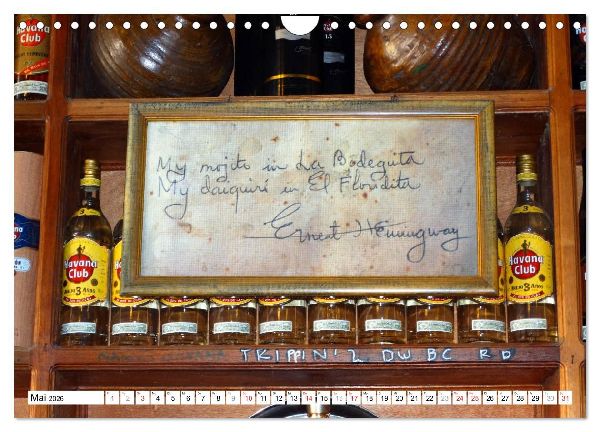 Havana
Club
My mojito in La Bodeguita
My daiquiri in El Floridita
Ernest Hemingway
Havana
Club
3
Añejo 3 Años
Havana
Club
Añejo 3 Años
TKIPPIN' 2 DW BC RD
Mai 2026
1 2 3 4 5 6 7 8 9 10 11 12 13 14 15 16 17 18 19 20 21 22 23 24 25 26 27 28 29 30 31